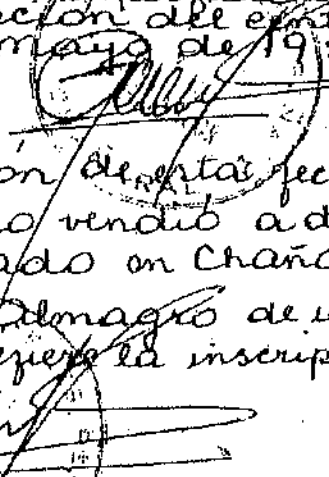 ción del
mayo de 19
ón de esta fec
o vendió a d
ado en Chaña
Almagro de
la inscrip